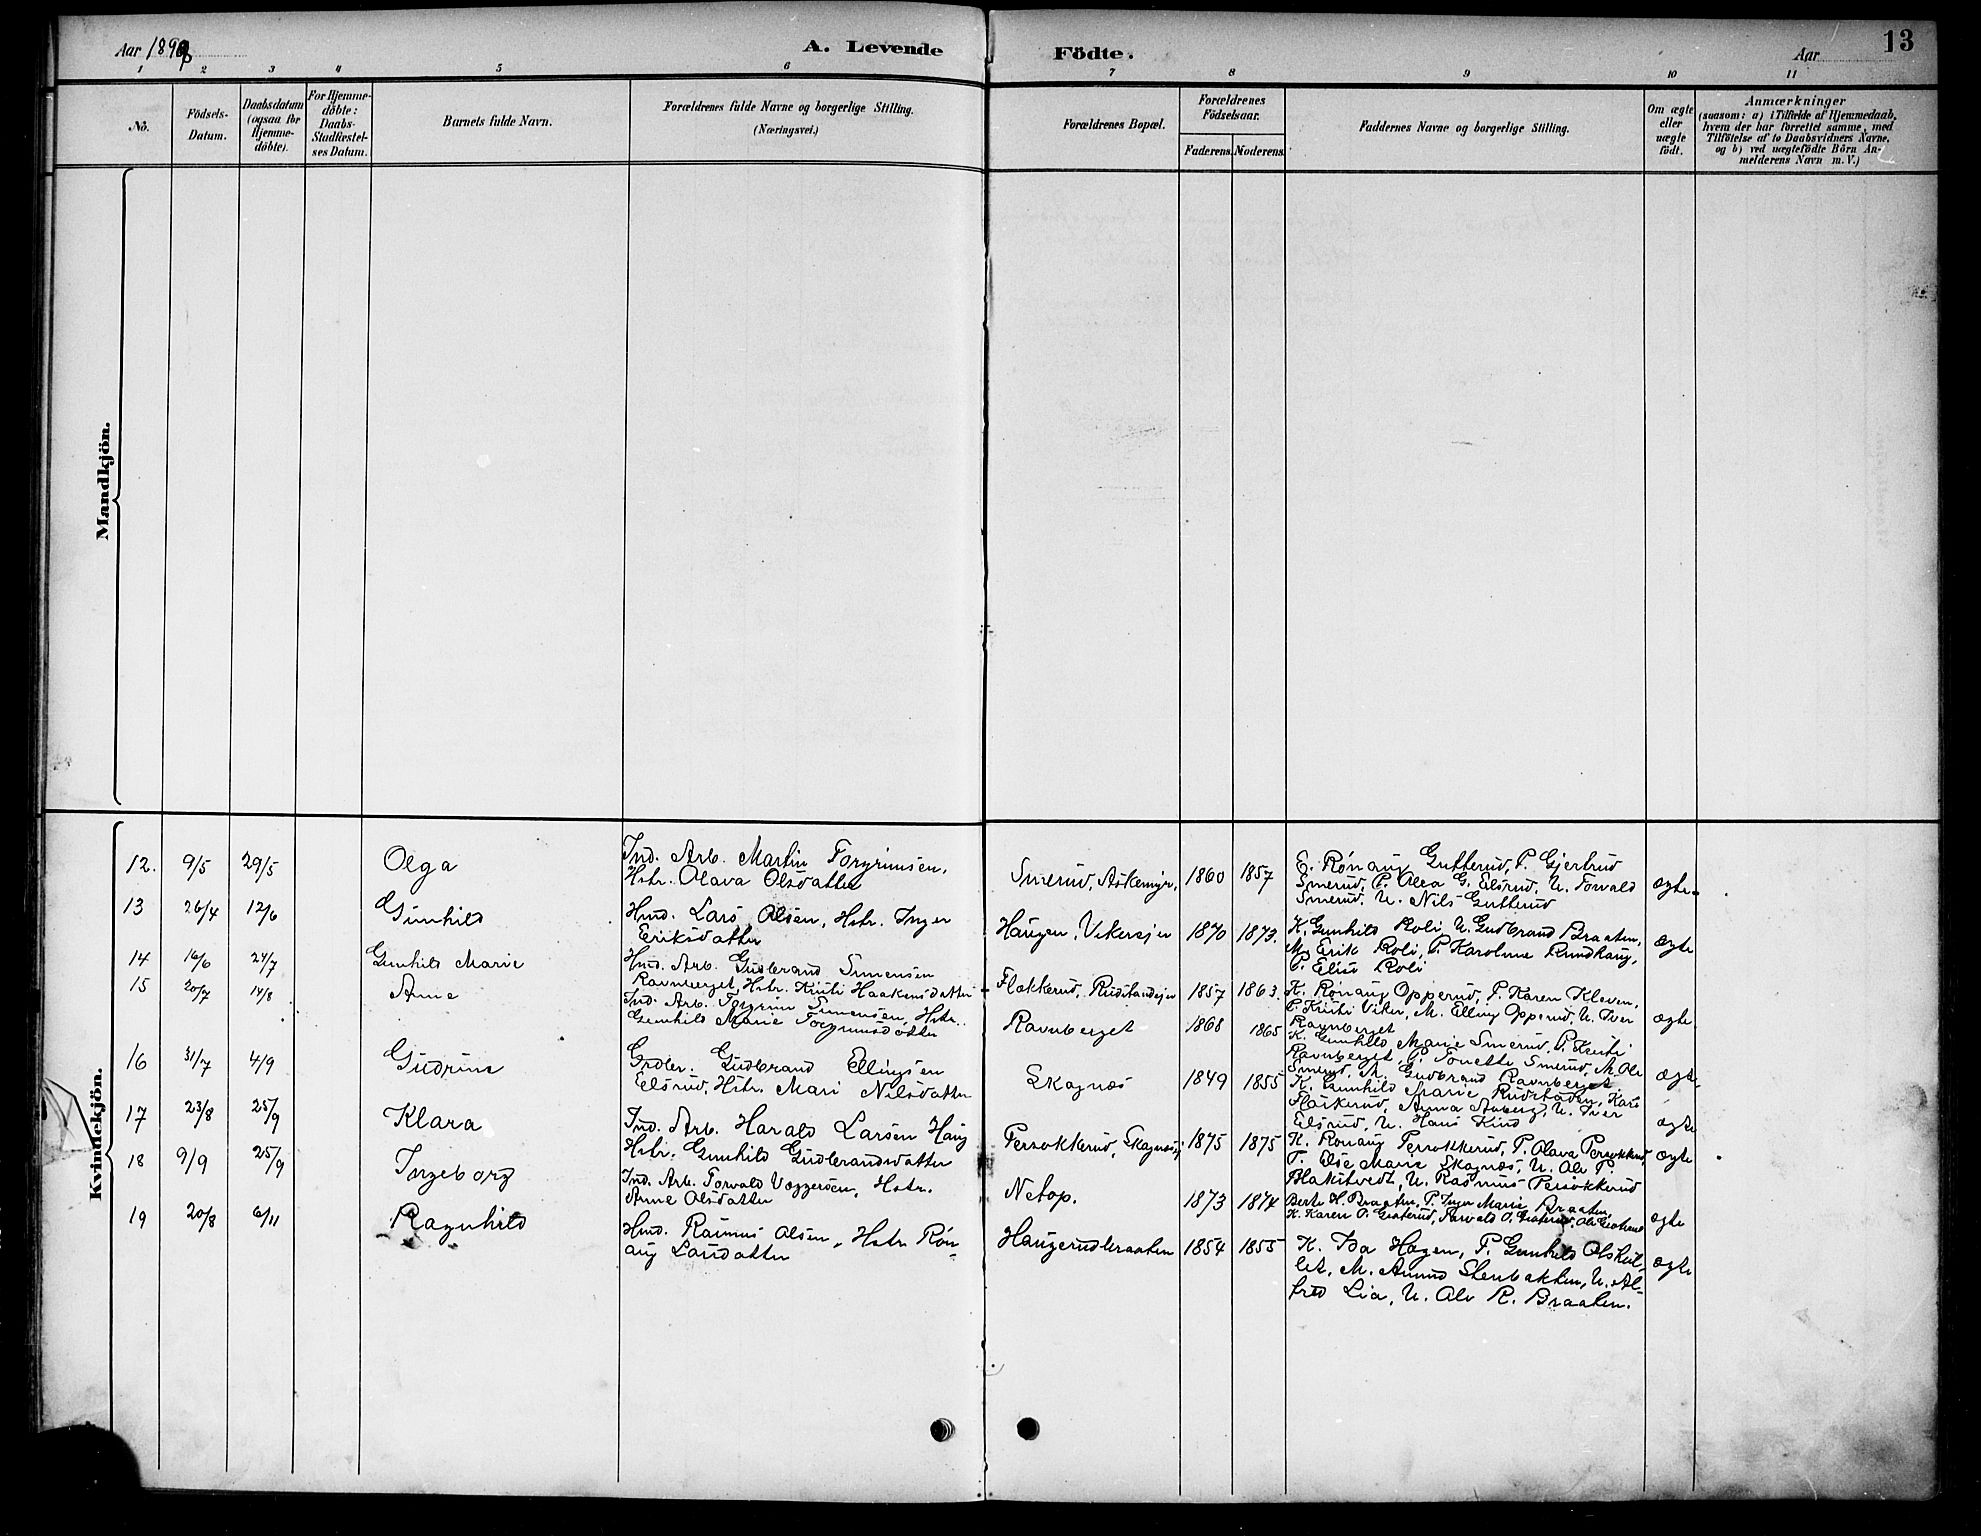 Aar 189
A. Levende
Födte.
Aar
13
1 2 3 4 5 6 7 8 9 10 11
No.
Födsels-
Datum.
Daabsdatum
(ogsaa for
Hjemme-
döbte).
For Hjemme-
döbte:
Daabs-
Stadfæstel-
ses Datum.
Barnets fulde Navn.
Forældrenes fulde Navne og borgerlige Stilling.
(Næringsvei.)
Forældrenes Bopæl.
Forældrenes
Födselsaar.
Faderens. Moderens.
Faddernes Navne og borgerlige Stilling.
Om ægte
eller
uægte
födt.
Anmærkninger
(saasom: a) i Tilfælde af Hjemmedaab,
hvem der har forrettet samme, med
Tilföielse af to Daabsvidners Navne,
og b) ved uægtefödte Börn An-
melderens Navn m. V.)
Mandkjön.
Kvindekjön.
12. 9/5 29/5 Olga
Ind. Arb. Martin Torgrimsen,
Hstr. Olava Olsdatter
Smerud, Askemyr, 1860 1857
E. Rönaug Gutterud, P. Gjertrud
Smerud, P. Olea G. Eilsrud, U. Torvald
Smerud, U. Nils Gutterud
ægte
13 26/4 12/6 Gunhild
Hmd. Lars Olsen, Hstr. Inger
Eriksdatter
Haugen, Vikersejer 1870 1873.
K. Gunhild Roli, U. Gudbrand Braaten,
M. Erik Roli, P. Karoline Rundhaug,
P. Elise Roli
ægte
14 16/6 24/7 Gunhild Marie
Hmd. Arb. Gudbrand Simensen
Ravnberget, Hstr. Kristi Haakensdatter
Flakkerud, Rudstadejer 1857 1863.
K. Rönaug Opperud, P. Karen Kleven,
P. Kristi Viker, M. Elling Opperud, U. Iver
Ravnberget
ægte
15 20/7 14/8 Anne
Ind. Arb. Torgrim Simensen, Hstr.
Gunhild Marie Torgrimsdatter
Ravnberget 1868 1865
K. Gunhild Marie Smerud, P. Kristi
Ravnberget, P. Tonette Smerud, M. Ole
Smerud, M. Gudbrand Ravnberget
ægte
16 31/7 4/9 Gudrun
Grdbr. Gudbrand Ellingsen
Eilsrud, Hstr. Mari Nilsdatter
Skagnæs 1849 1855
K. Gunhild Marie Rudstaden, Kari
Flaskerud, Anna Aaberg, U. Iver
Eilsrud, U. Hans Kind
ægte
17 23/8 25/9 Klara
Ind. Arb. Harald Larsen Haug
Hstr. Gunhild Gudbrandsdatter
Persokkerud, Skagnæsej 1875 1875
K. Ronaug Persokkerud, P. Olava Persokkerud
P. Else Marie Skagnæs, U. Ole P.
Blakstvedt, U. Rasmus Persokkerud
ægte
18 9/9 25/9 Ingeborg
Ind. Arb. Torvald Vaggersen, Hstr.
Anne Olsdatter
Netop. 1873 1874
Berte H. Braaten, P. Inger Marie Braaten,
K. Karen O. Graterud, Torvald O. Graterud, Ole Graterud
ægte
19 20/8 6/11 Ragnhild
Hmd. Rasmus Olsen, Hstr. Rön-
aug Larsdatter
Haugerudbraaten 1854 1855
K. Ida Hagen, P. Gunhild Olshul-
let, M. Amund Stenbakken, U. Al-
fred Lia, U. Ole R. Braaten.
ægte